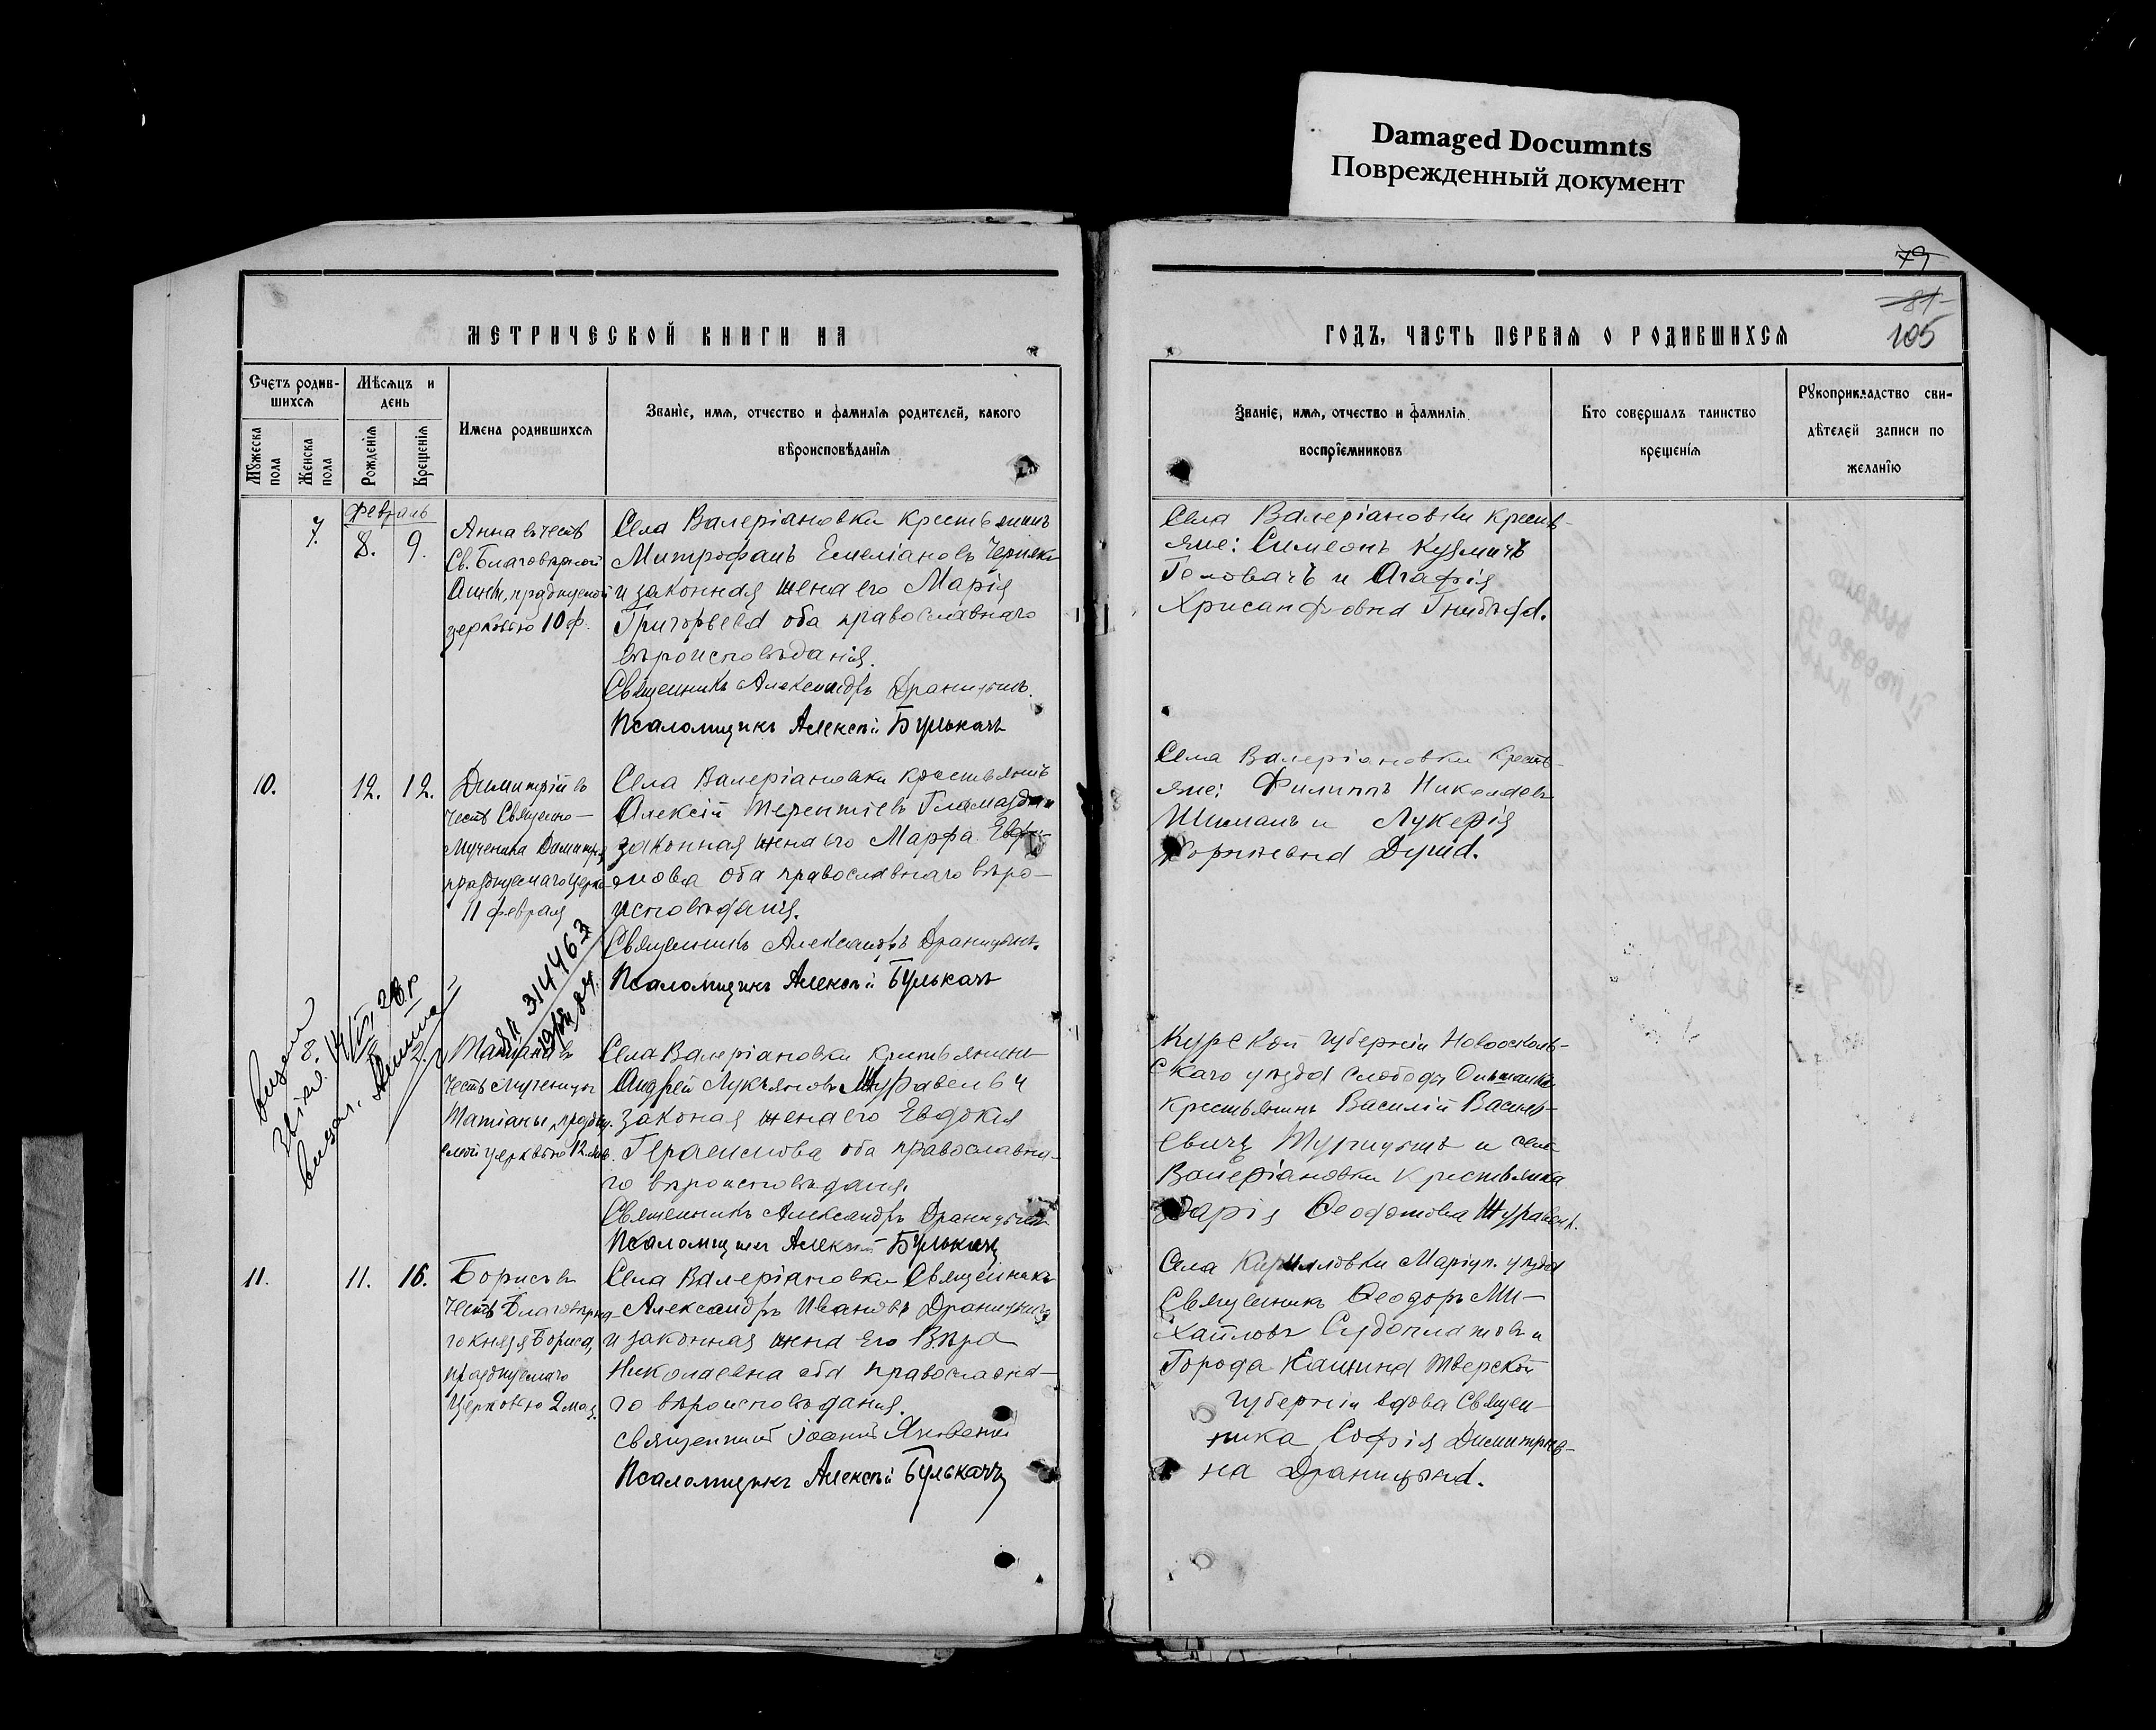 Damaged Documnts
Поврежденный документ
79
81
105
МЕТРИЧЕСКОЙ КНИГИ НА
ГОДЪ, ЧАСТЬ ПЕРВАЯ О РОДИВШИХСЯ
Счетъ родив-
шихся
Мѣсяцъ и
день
Имена родившихся
Званіе, имя, отчество и фамилія родителей, какого
вѣроисповѣданія
Мужеска
пола
Женска
пола
Рожденія
Крещенія
Званіе, имя, отчество и фамилія
воспріемниковъ
Кто совершалъ таинство
крещенія
Рукоприкладство сви-
дѣтелей записи по
желанію
Февраль
7. 8. 9.
Анна въ честь
Св. Благовѣрной
Анны, празднуемой
церковью 10 ф.
Села Валеріановки крестьянинъ
Митрофанъ Емеліановъ
и законная жена его Марія
Григорьева оба православнаго
вѣроисповѣданія.
Священникъ Александръ Драницынъ.
Псаломщикъ Алексѣй Булькачъ
Села Валеріановки кресть-
яне: Симеонъ Кузмичъ
Головачъ и Агафія
Хрисанфовна
10. 12. 12.
Димитрій въ
честь Священно-
мученика Димитрія
празднуемаго церко
11 февраля
Села Валеріановки крестьянинъ
Алексій Терентіевъ Гламазда и
законная жена его Марфа
оба православнаго вѣро-
исповѣданія.
Священникъ Александръ Драницынъ.
Псаломщикъ Алексѣй Булькачъ
Села Валеріановки кресть-
яне: Филиппъ Николаевъ
Шиманъ и Лукерія
314463
Татіана въ
честь мученицы
Татіаны, праздну
емой церковью 12 янв.
Села Валеріановки крестьянинъ
Андрей Лукьяновъ Журавель и
законая жена его Евдокія
Герасимова оба православна-
го вѣроисповѣданія.
Священникъ Александръ Драницынъ
Псаломщикъ Алексѣй Булькачъ
Курской губерніи Новоосколь-
скаго уѣзда слободы Ольшанки
крестьянинъ Василій Василь-
евичъ и села
Валеріановки крестьянка
Дарія Ѳеодотова Журавель.
11. 11. 16.
Борисъ въ
честь Благовѣрна-
го князя Бориса,
празднуемаго
Церковью 2 мая.
Села Валеріановки Священникъ
Александръ Ивановъ Драницынъ
и законная жена его Вѣра
Николаевна оба православна-
го вѣроисповѣданія.
священникъ Іоаннъ
Псаломщикъ Алексѣй Булькачъ
Села Кирилловки Маріуп. уѣзда
Священникъ Ѳеодоръ Ми-
хайловъ Судоплатовъ и
Города Кашина Тверской
губерніи вдова Священ-
ника Софія Димитріев-
на Драницына.